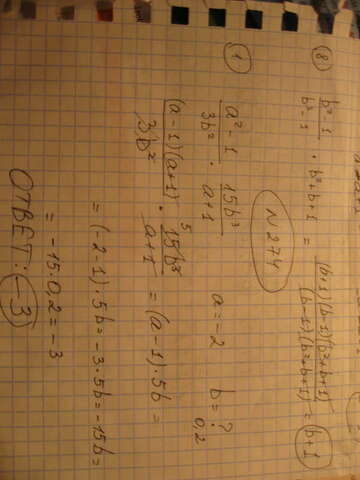 ⑧ (b² - 1)/(b³ - 1) · b² + b + 1 = (b+1)(b-1)(b²+b+1)/(b-1)(b²+b+1) = b+1
N274
① (a² - 1)/(3b²) · (15b³)/(a+1) a = -2 b = ? 0,2
(a-1)(a+1)/(3b²) · 5 15b³/(a+1) = (a-1)·5b =
= (-2-1)·5b = -3·5b = -15b =
= -15·0,2 = -3
ОТВЕТ: -3